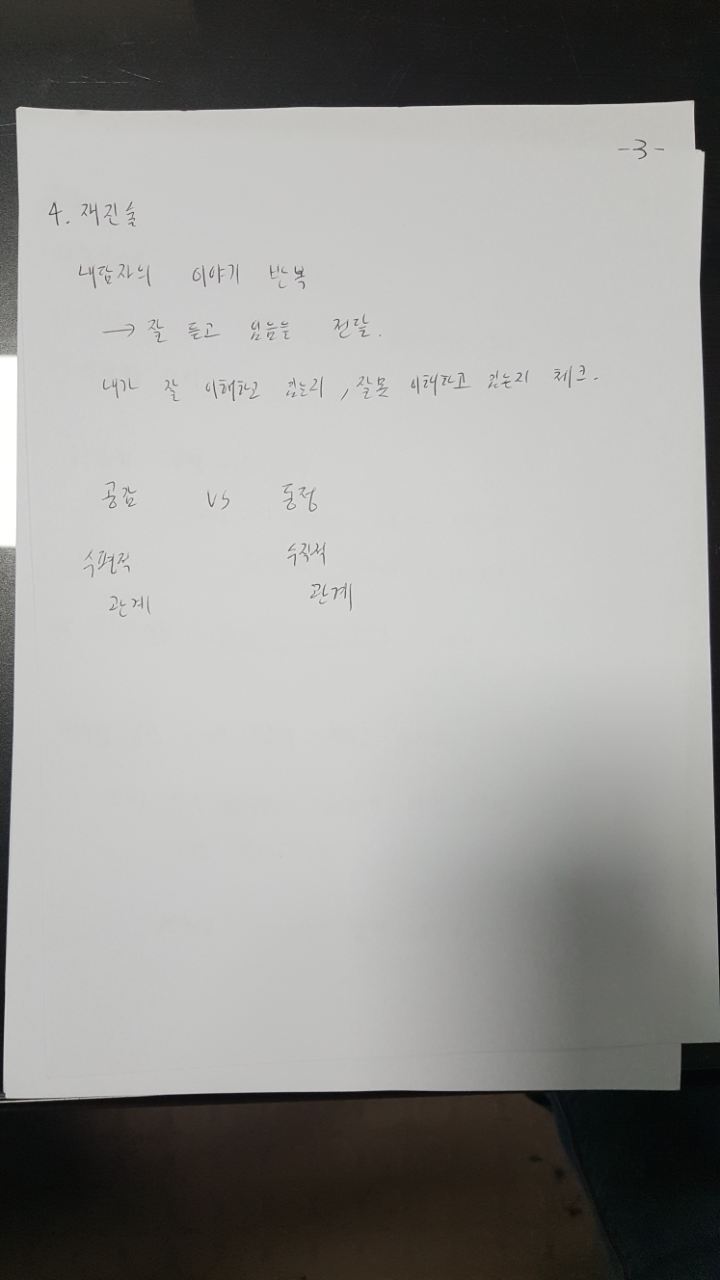 -3-
4. 재진술
내담자의 이야기 반복
→ 잘 듣고 있음을 전달.
내가 잘 이해하고 있는지, 잘못 이해하고 있는지 체크.
공감 vs 동정
수평적 수직적
관계 관계